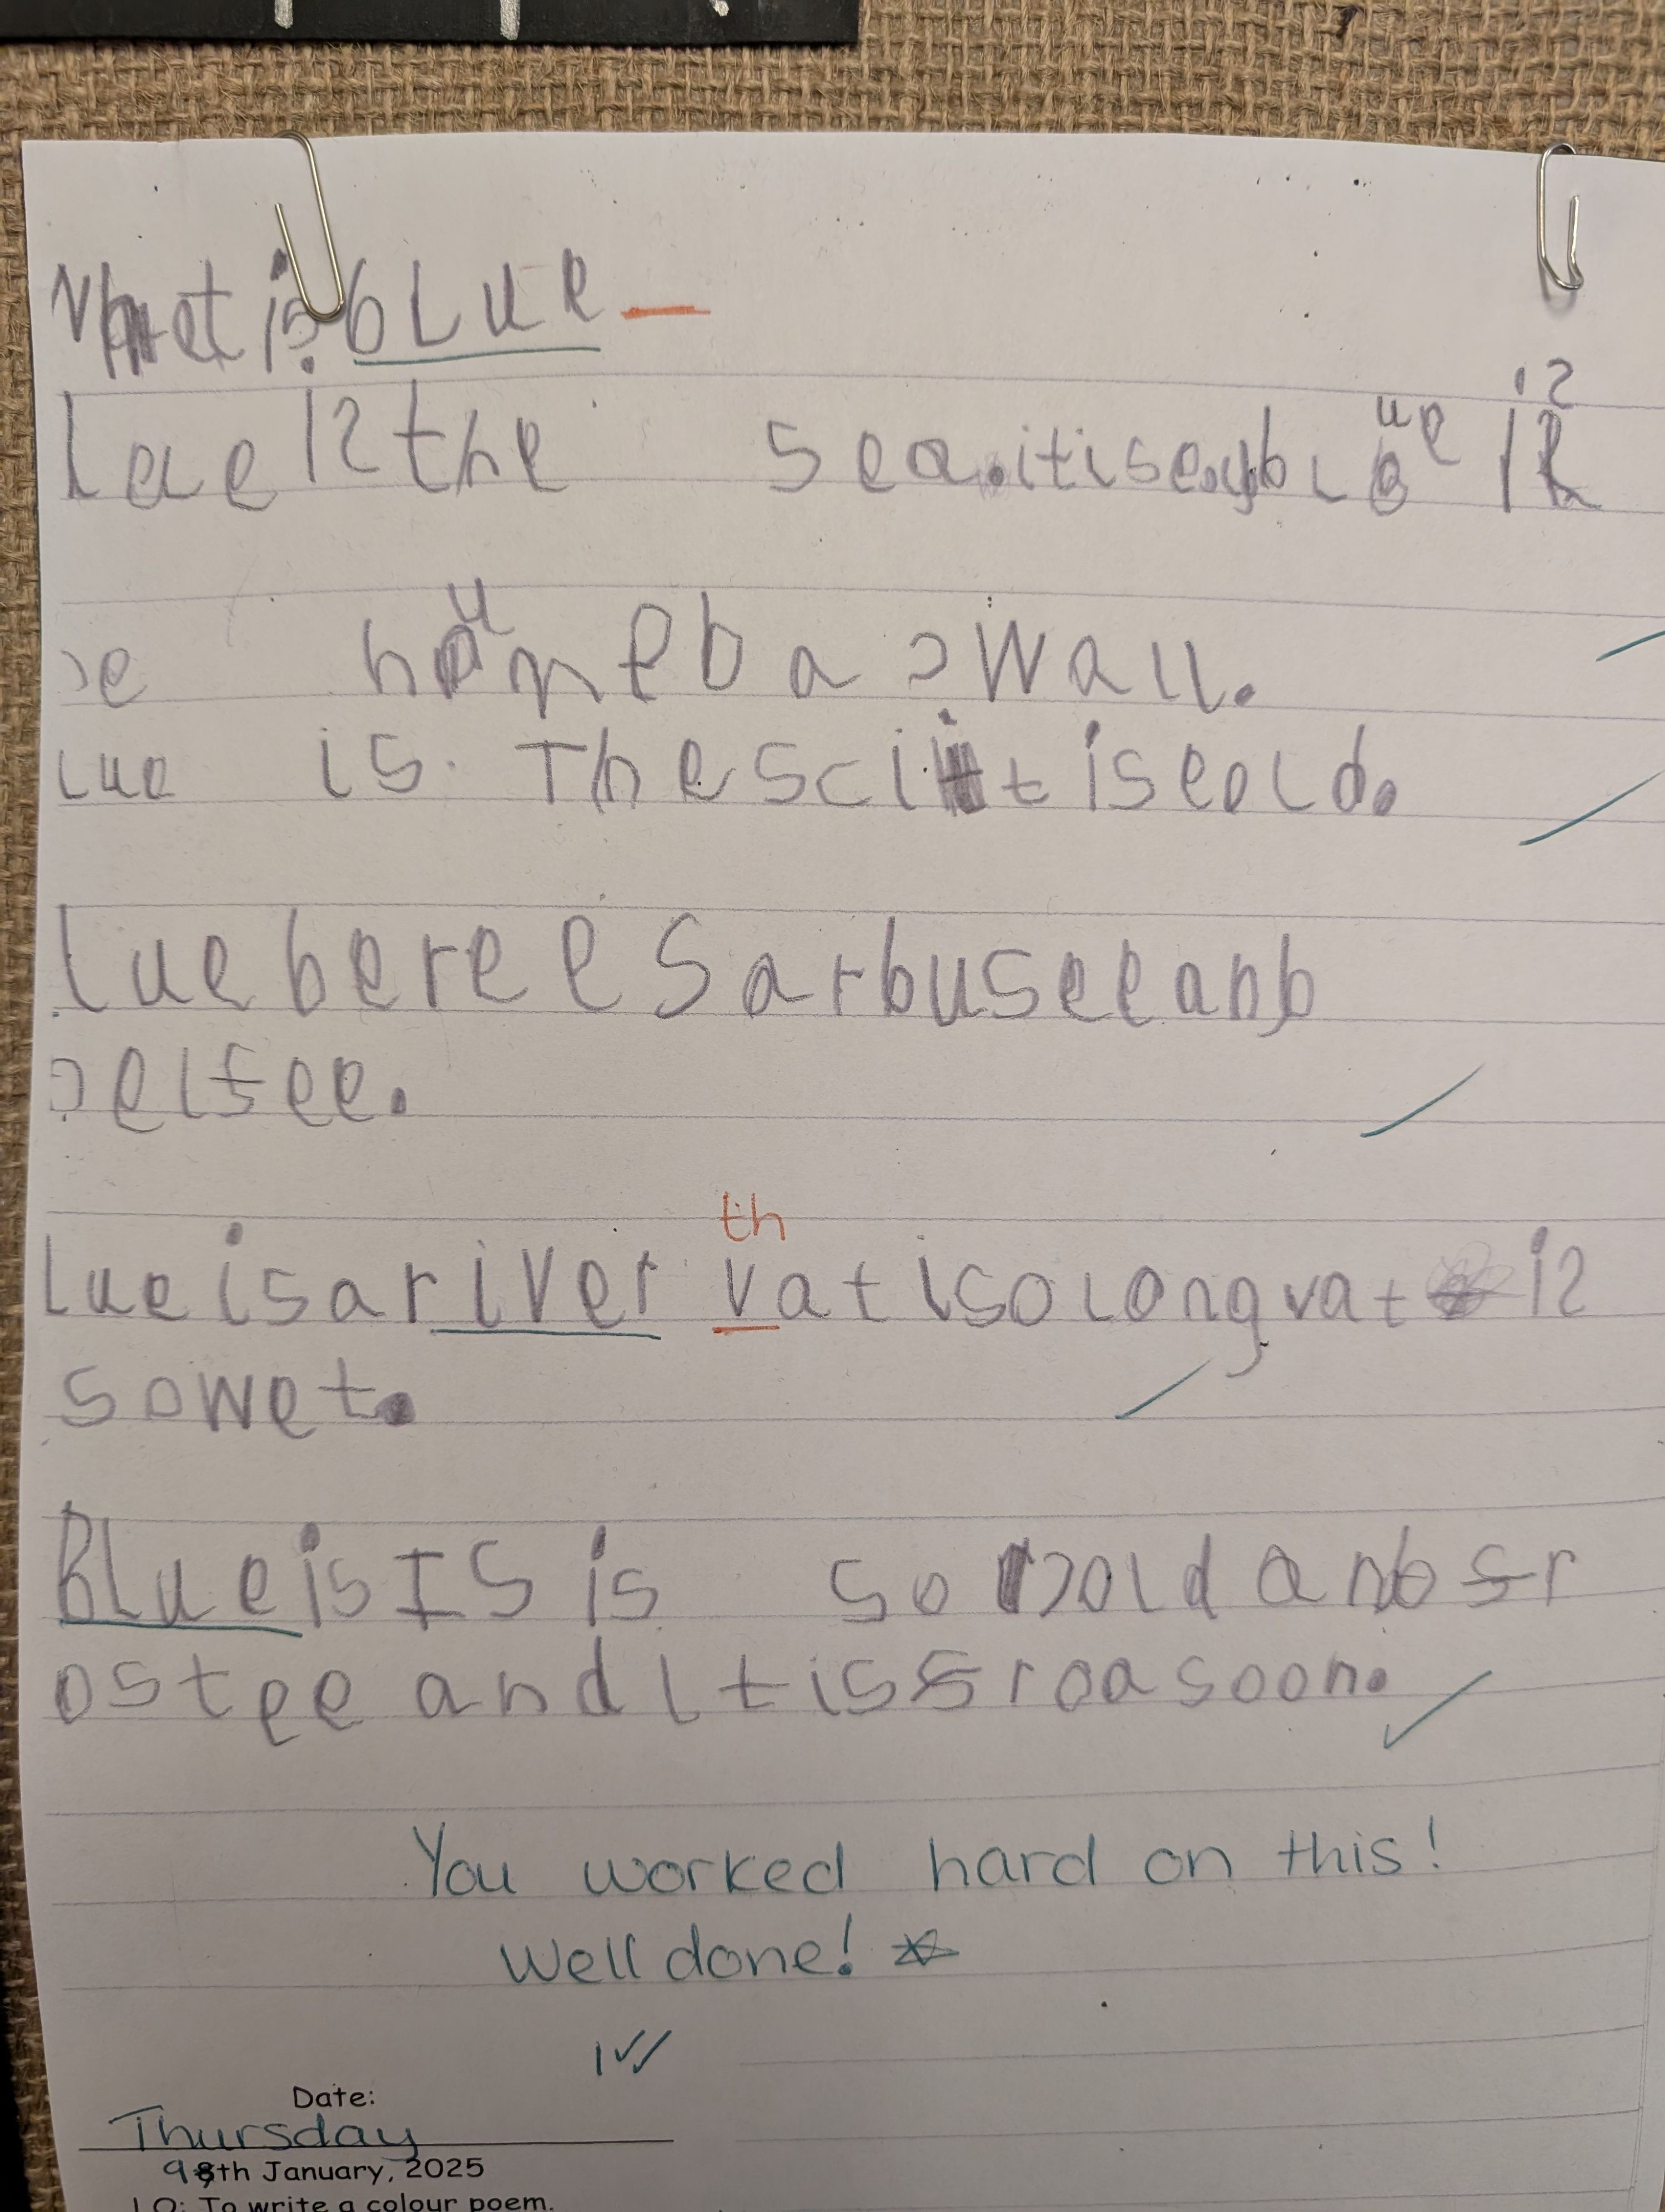 What is bLue
Lue is the sea. it is
ue is
hume b a wall.
Lue is The sci it is cold.
Lue berees ar buseeanb
ee.
th
Lue is a river vat is o Long vat is
so wet.
BLue is IS is so cold anb fr
ostee and it is froasoon.
You worked hard on this!
Well done!
Date:
Thursday
9th January, 2025
LO: To write a colour poem.